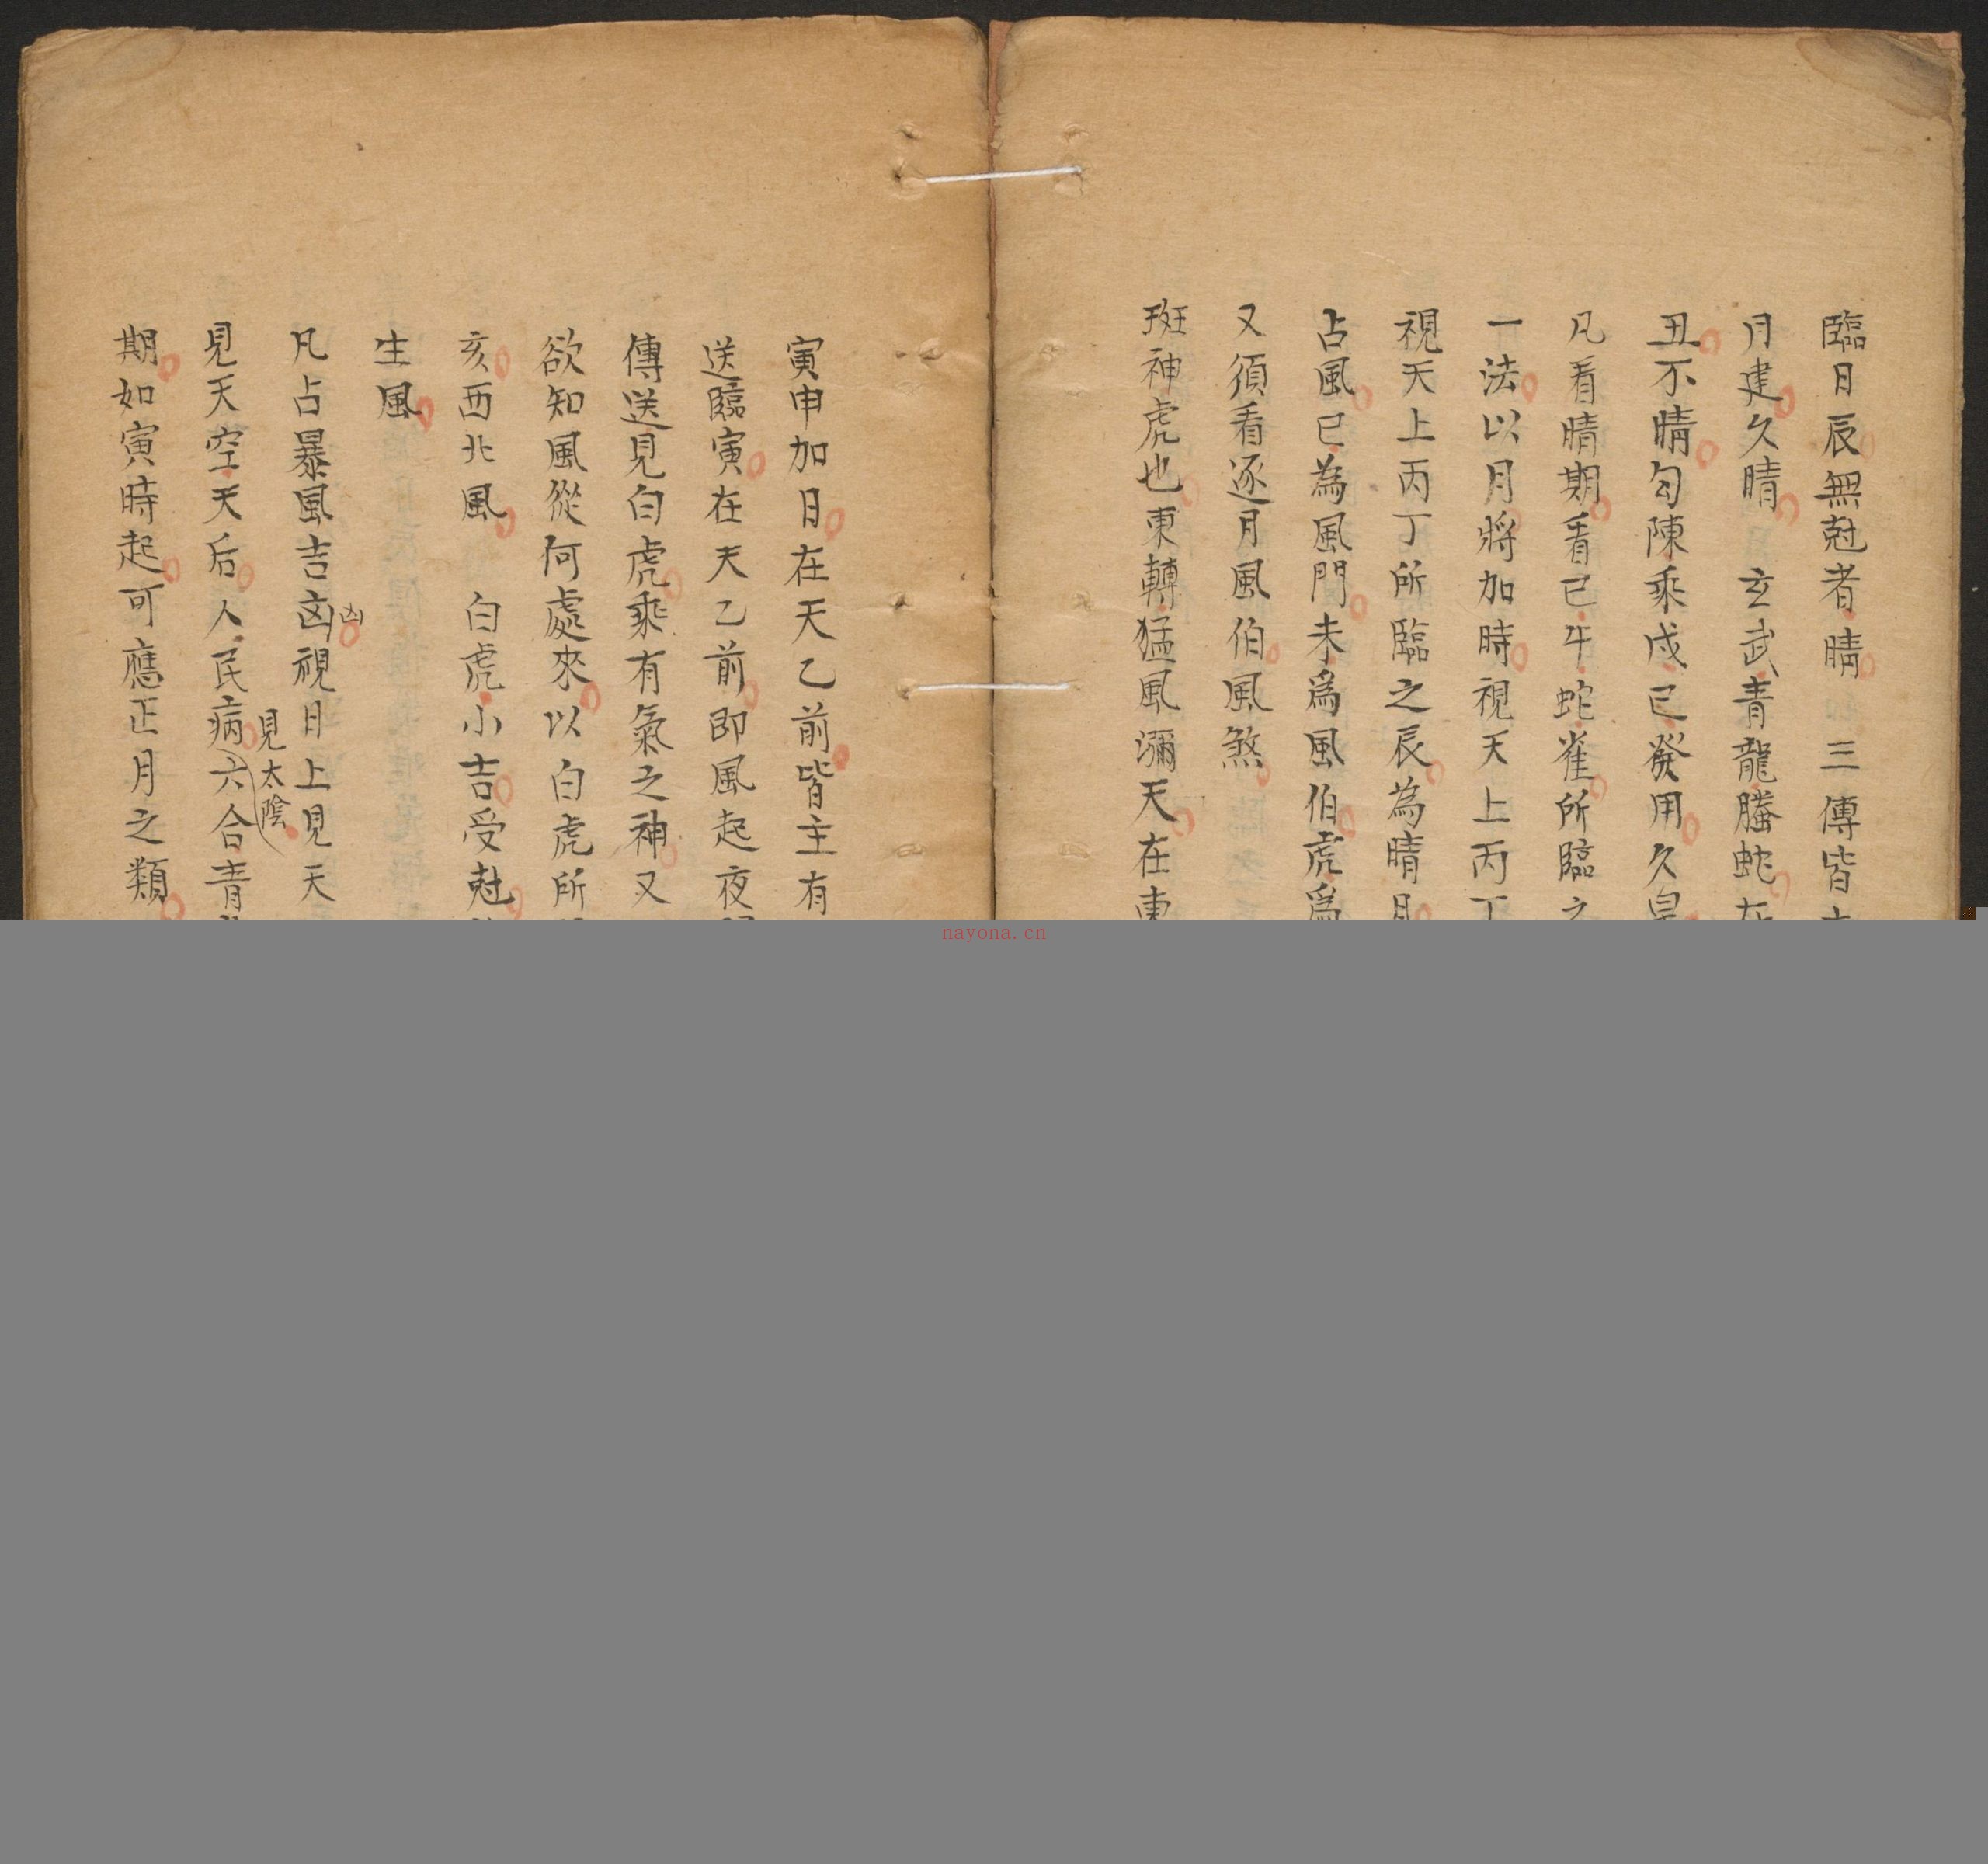 臨日辰無尅者晴 三傳皆
月建久晴 玄武青龍螣蛇在
丑不晴勾陳乘戌已發用久
凡看晴期看已午蛇雀所臨之
一法以月將加時視天上丙丁
視天上丙丁所臨之辰為晴
占風已為風門未為風伯虎為
又須看逐月風伯風煞
班神虎也東轉猛風瀰天在東
寅申加日在天乙前皆主有
送臨寅在天乙前即風起夜
傳送見白虎乘有氣之神又
欲知風從何處來以白虎所
亥西北風 白虎小吉受尅
生風
凡占暴風吉凶凶視日上見天
見太陰
見天空天后人民病六合青
期如寅時起可應正月之類
nayona.cn